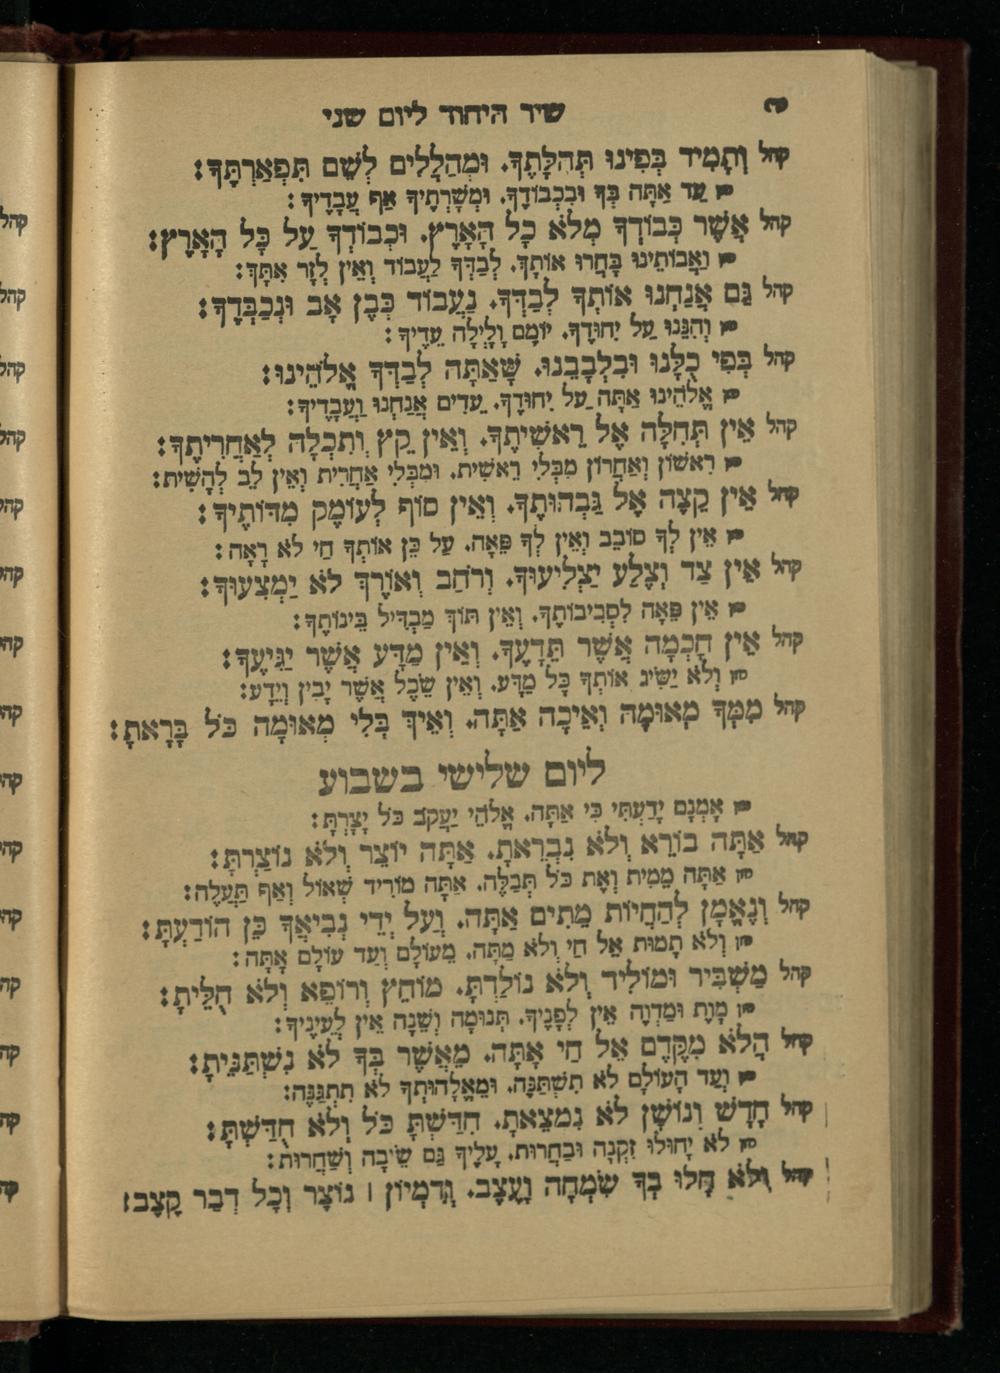 שיר היחוד ליום שני
קהל וְתָמִיד בְּפִינוּ תְּהִלָּתֶךָ. וּמְהַלְלִים לְשֵׁם תִּפְאַרְתֶּךָ:
חזן עַד אַתָּה בְּךָ וּבִכְבוֹדֶךָ. וּמְשָׁרְתֶיךָ אַף עֲבָדֶיךָ:
קהל אֲשֶׁר כְּבוֹדְךָ מְלֹא כָל הָאָרֶץ. וּכְבוֹדְךָ עַל כָּל הָאָרֶץ:
חזן וַאֲבוֹתֵינוּ בָּחֲרוּ אוֹתָךְ. לְבַדְּךָ לַעֲבוֹד וְאֵין לְזָר אִתָּךְ:
קהל גַּם אֲנַחְנוּ אוֹתְךָ לְבַדְּךָ. נַעֲבוֹד כְּבֶן אָב וּנְכַבְּדֶךָ:
חזן וְהִנֵּנוּ עַל יִחוּדֶךָ. יוֹמָם וָלַיְלָה עֵדֶיךָ:
קהל בְּפִי כֻלָּנוּ וּבִלְבָבֵנוּ. שָׁאַתָּה לְבַדְּךָ אֱלֹהֵינוּ:
חזן אֱלֹהֵינוּ אַתָּה עַל יִחוּדֶךָ. עֵדִים אֲנַחְנוּ וַעֲבָדֶיךָ:
קהל אֵין תְּחִלָּה אֶל רֵאשִׁיתֶךָ. וְאֵין קֵץ וְתִכְלָה לְאַחֲרִיתֶךָ:
חזן רִאשׁוֹן וְאַחֲרוֹן מִבְּלִי רֵאשִׁית. וּמִבְּלִי אַחֲרִית וְאֵין לֵב לְהָשִׁית:
קהל אֵין קָצֶה אֶל גַּבְהוּתֶךָ. וְאֵין סוֹף לְעוֹמֶק מִדּוֹתֶיךָ:
חזן אֵין לְךָ סוֹבֵב וְאֵין לְךָ פֵּאָה. עַל כֵּן אוֹתְךָ חַי לֹא רָאָה:
קהל אֵין צַד וְצֶלַע יַצְלִיעוּךָ. וְרֹחַב וְאוֹרֶךְ לֹא יַמְצִעוּךָ:
חזן אֵין פֵּאָה לִסְבִיבוֹתֶךָ. וְאֵין תּוֹךְ מַבְדִּיל בֵּינוֹתֶךָ:
קהל אֵין חָכְמָה אֲשֶׁר תֵּדָעֶךָ. וְאֵין מַדָּע אֲשֶׁר יַגִּיעֶךָ:
חזן וְלֹא יַשִּׂיג אוֹתְךָ כָּל מַדָּע. וְאֵין שֵׂכֶל אֲשֶׁר יָבִין וְיֵדָע:
קהל מִמְּךָ מְאוּמָה וְאֵיכָה אַתָּה. וְאֵיךְ בְּלִי מְאוּמָה כֹּל בָּרָאתָ:
ליום שלישי בשבוע
חזן אָמְנָם יָדַעְתִּי כִּי אַתָּה. אֱלֹהֵי יַעֲקֹב כֹּל יָצָרְתָּ:
קהל אַתָּה בוֹרֵא וְלֹא נִבְרֵאתָ. אַתָּה יוֹצֵר וְלֹא נוֹצַרְתָּ:
חזן אַתָּה מֵמִית וְאֶת כֹּל תְּבַלֶּה. אַתָּה מוֹרִיד שְׁאוֹל וְאַף תַּעֲלֶה:
קהל וְנֶאֱמָן לְהַחֲיוֹת מֵתִים אַתָּה. וְעַל יְדֵי נְבִיאֲךָ כֵּן הוֹדַעְתָּ:
חזן וְלֹא תָמוּת אֵל חַי וְלֹא מַתָּה. מֵעוֹלָם וְעַד עוֹלָם אָתָּה:
קהל מַשְׁבִּיר וּמוֹלִיד וְלֹא נוֹלַדְתָּ. מוֹחֵץ וְרוֹפֵא וְלֹא חֻלֵּיתָ:
חזן מָוֶת וּמַדְוֶה אֵין לְפָנֶיךָ. תְּנוּמָה וְשֵׁנָה אֵין לְעֵינֶיךָ:
קהל הֲלֹא מִקֶּדֶם אֵל חַי אָתָּה. מֵאֲשֶׁר בְּךָ לֹא נִשְׁתַּנֵּיתָ:
חזן וְעַד הָעוֹלָם לֹא תִשְׁתַּנֶּה. וּמֵאֱלָהוּתְךָ לֹא תִתְגַּנֶּה:
קהל חָדָשׁ וְנוֹשָׁן לֹא נִמְצֵאתָ. חִדַּשְׁתָּ כֹּל וְלֹא חֻדַּשְׁתָּ:
חזן לֹא יָחוּלוּ זִקְנָה וּבַחֲרוּת. עָלֶיךָ גַּם שֵׂיבָה וְשַׁחֲרוּת:
קהל וְלֹא חָלוּ בְךָ שִׂמְחָה וְעָצֶב. וְדִמְיוֹן נוֹצָר וְכָל דְּבַר קָצֶב: